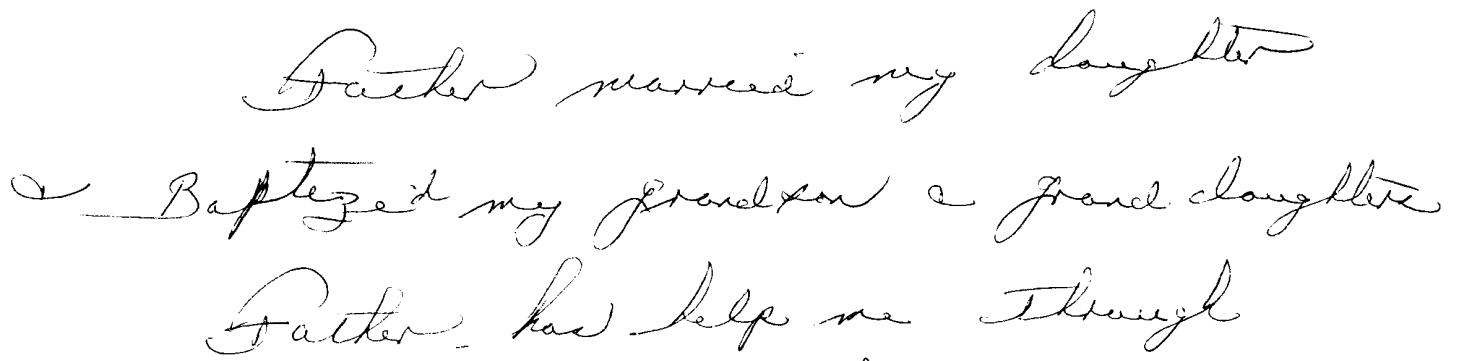 Father married my daughter
& Baptized my grandson & grand daughters
Father has help me through